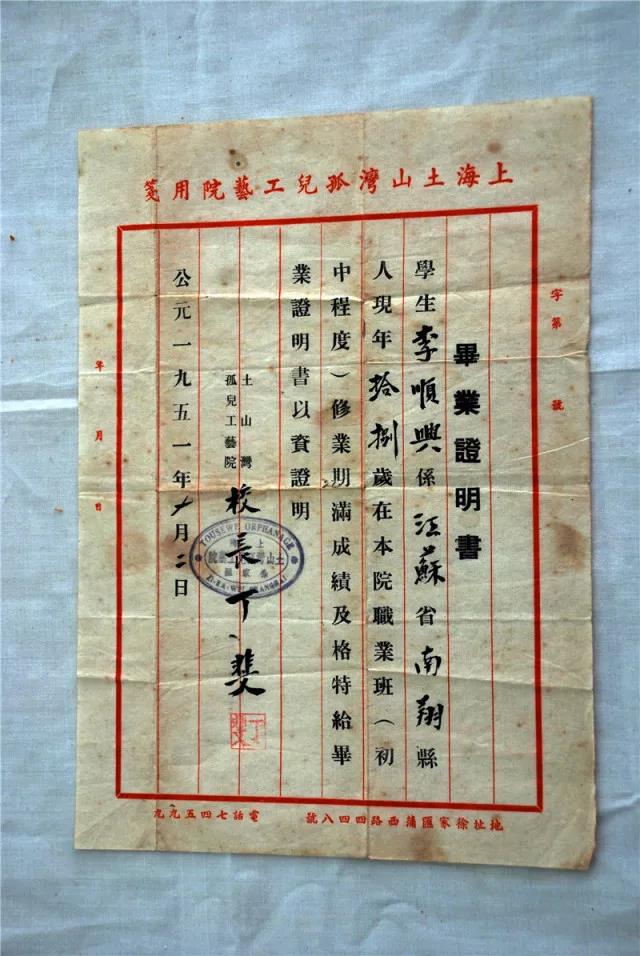 上海土山灣孤兒工藝院用箋
字第 號
畢業證明書
學生李順興係江蘇省南翔縣
人現年拾捌歲在本院職業班（初
中程度）修業期滿成績及格特給畢
業證明書以資證明
土山灣
孤兒工藝院
校長丁斐
TOUSEWE ORPHANAGE
上海
土山灣孤兒工藝院
公元一九五一年十月二日
年 月 日
地址徐家匯蒲西路四四八號
電話七四五九九